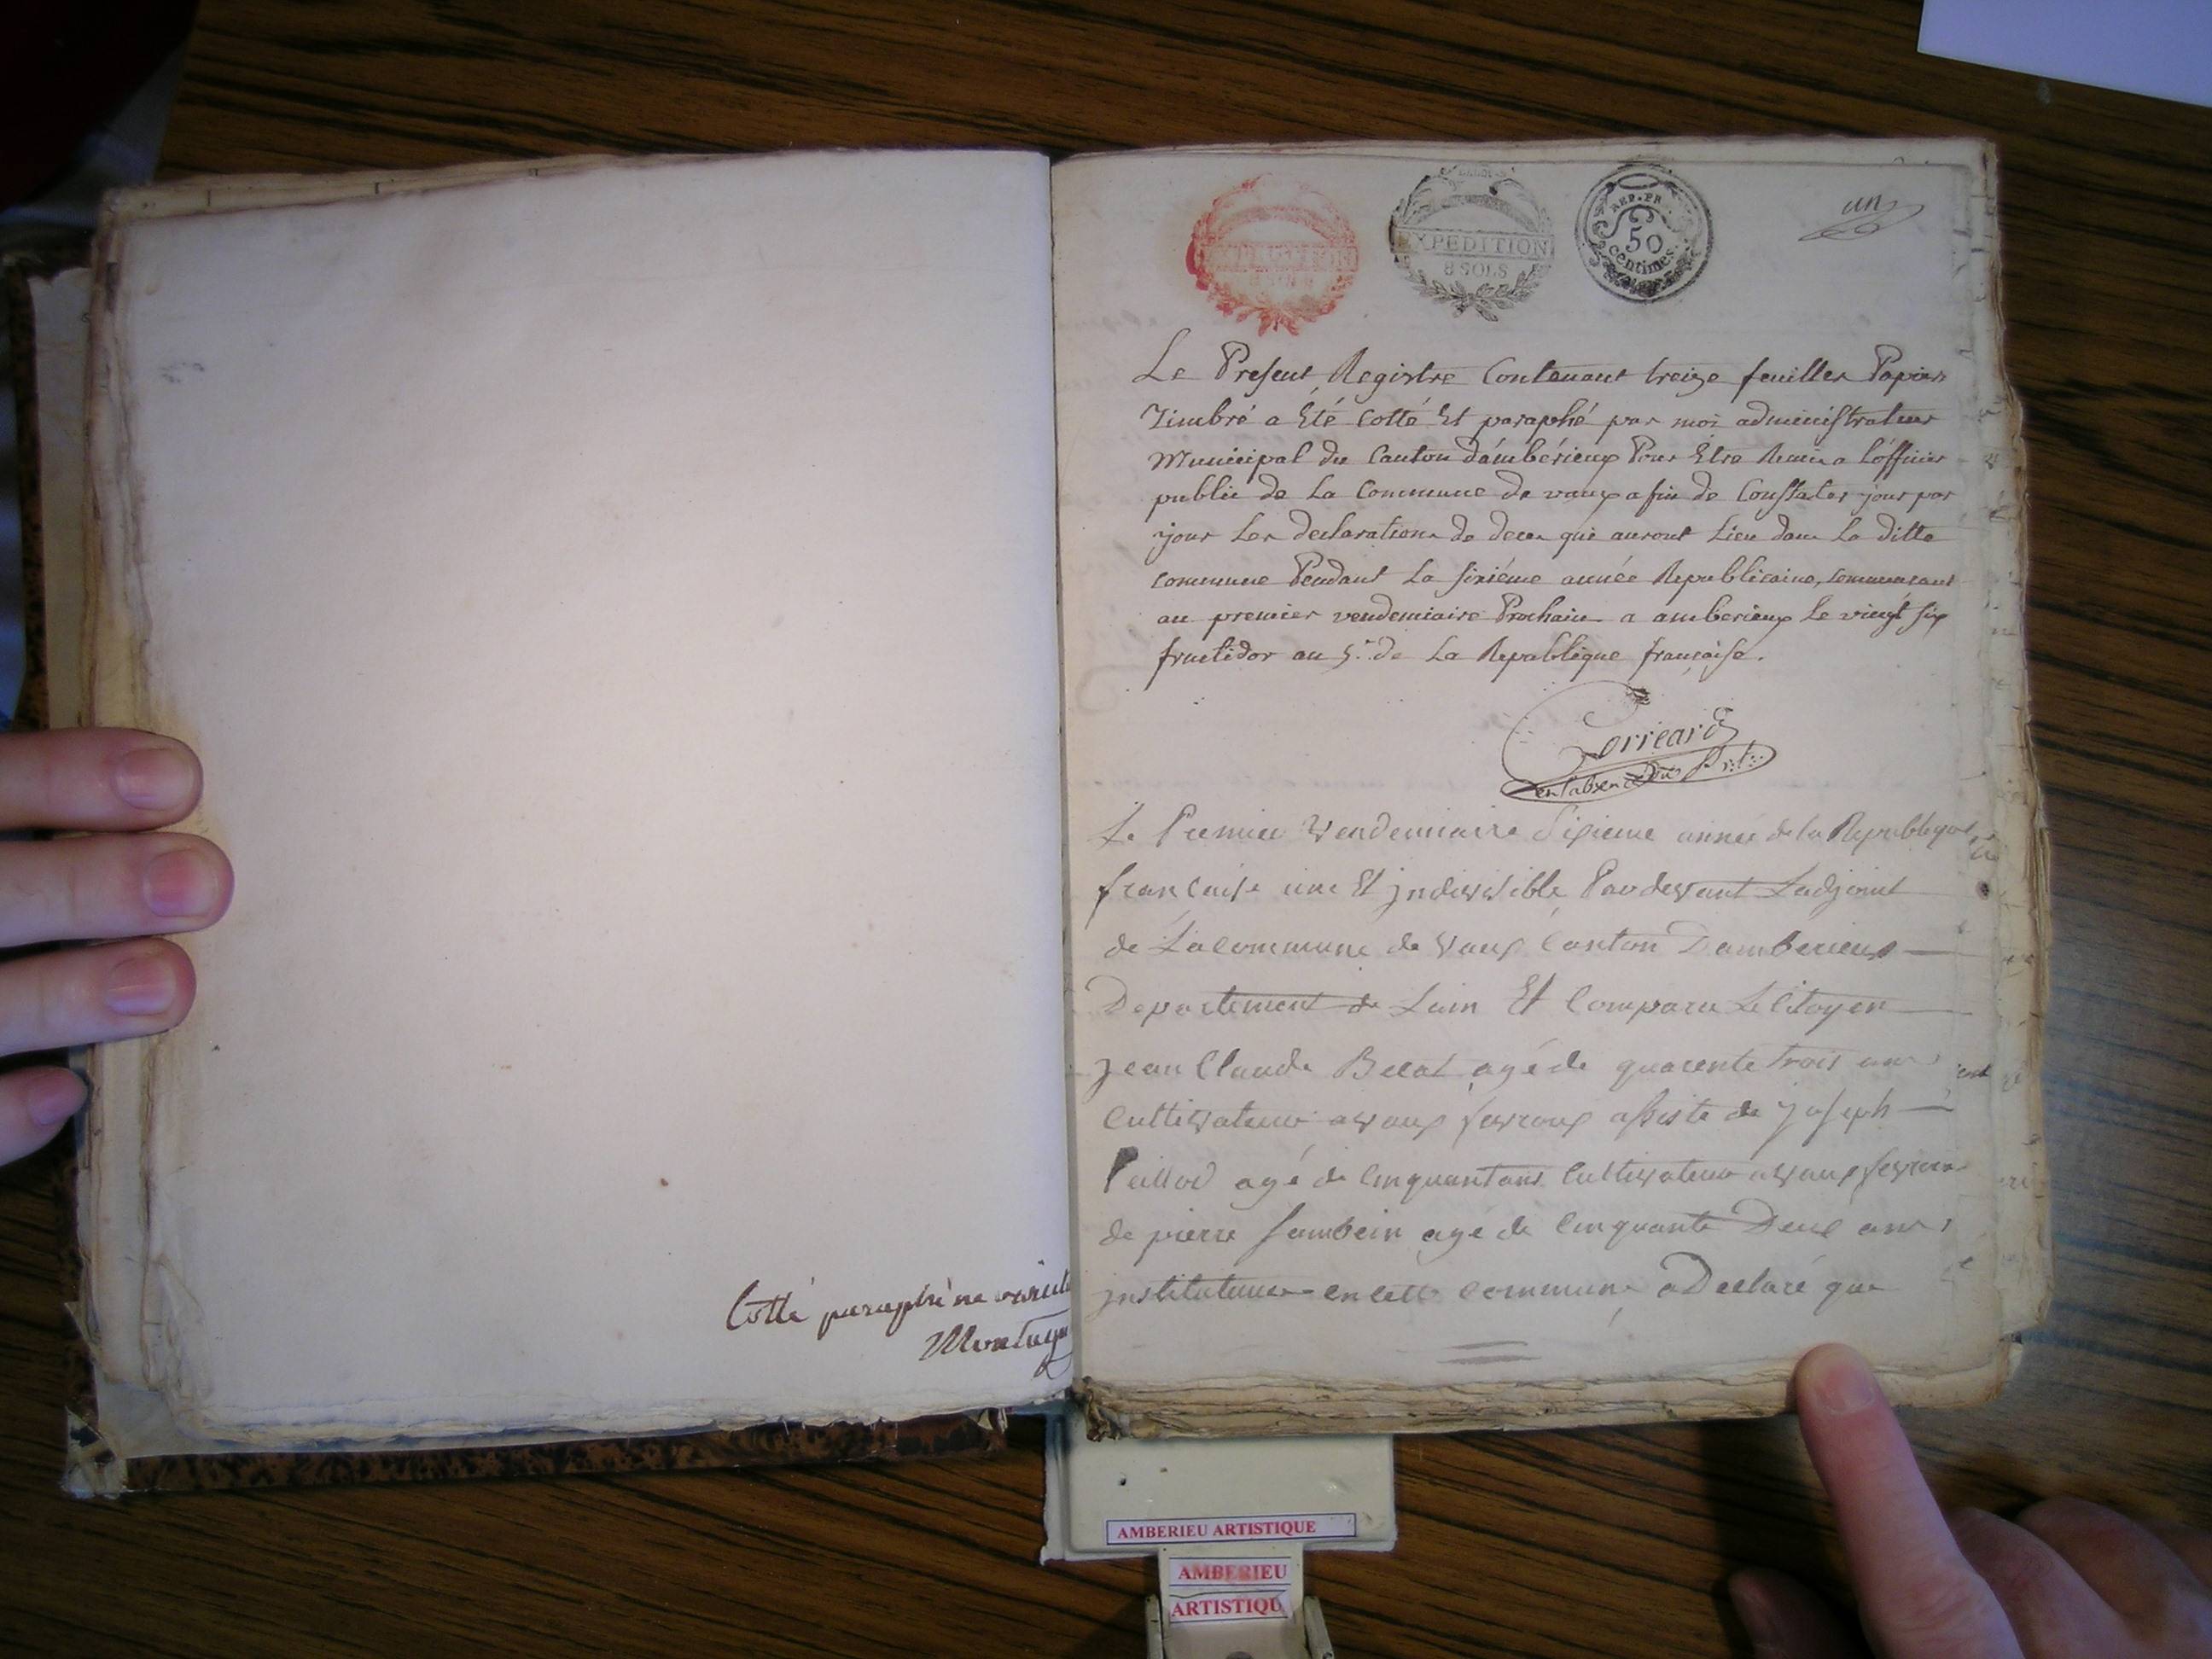 Cotté paraphé ne varietur
Montagn
EXPEDITION
8 SOLS
REP. FR.
50
centimes.
un
Le Present Registre Contenant treize feuilles Papier
Timbré a Eté Cotté Et paraphé par moi administrateur
Municipal du Canton d'ambérieux Pour Etre Remis a L'officier
public de La Commune de vaux afin de Constater jour par
jour Les declarations de deces qui auront Lieu dans La ditte
commune Pendant La sixiéme année Republicaine, commencant
au premier vendemiaire Prochain a amberieux Le vingt six
fructidor an 5.e de La Republique française.
Corréard
en l'absence du Prt.
Le Premier Vendemiaire Sixieme année de la Republique
francaise une Et jndivisible Pardevant Ladjoint
de La commune de Vaux Canton Damberieux
Departement de Lain Et Comparu Le Citoyen
jean Claude Belat agé de quarente trois ans
Cultivateur a vaux fevroux assisté de joseph
Peillod agé de Cinquant ans Cultivateur a vaux fevroux
de pierre Sambein agé de Cinquante Deux ans
jnstituteur en cette commune a Declaré que
AMBERIEU ARTISTIQUE
AMBERIEU
ARTISTIQU